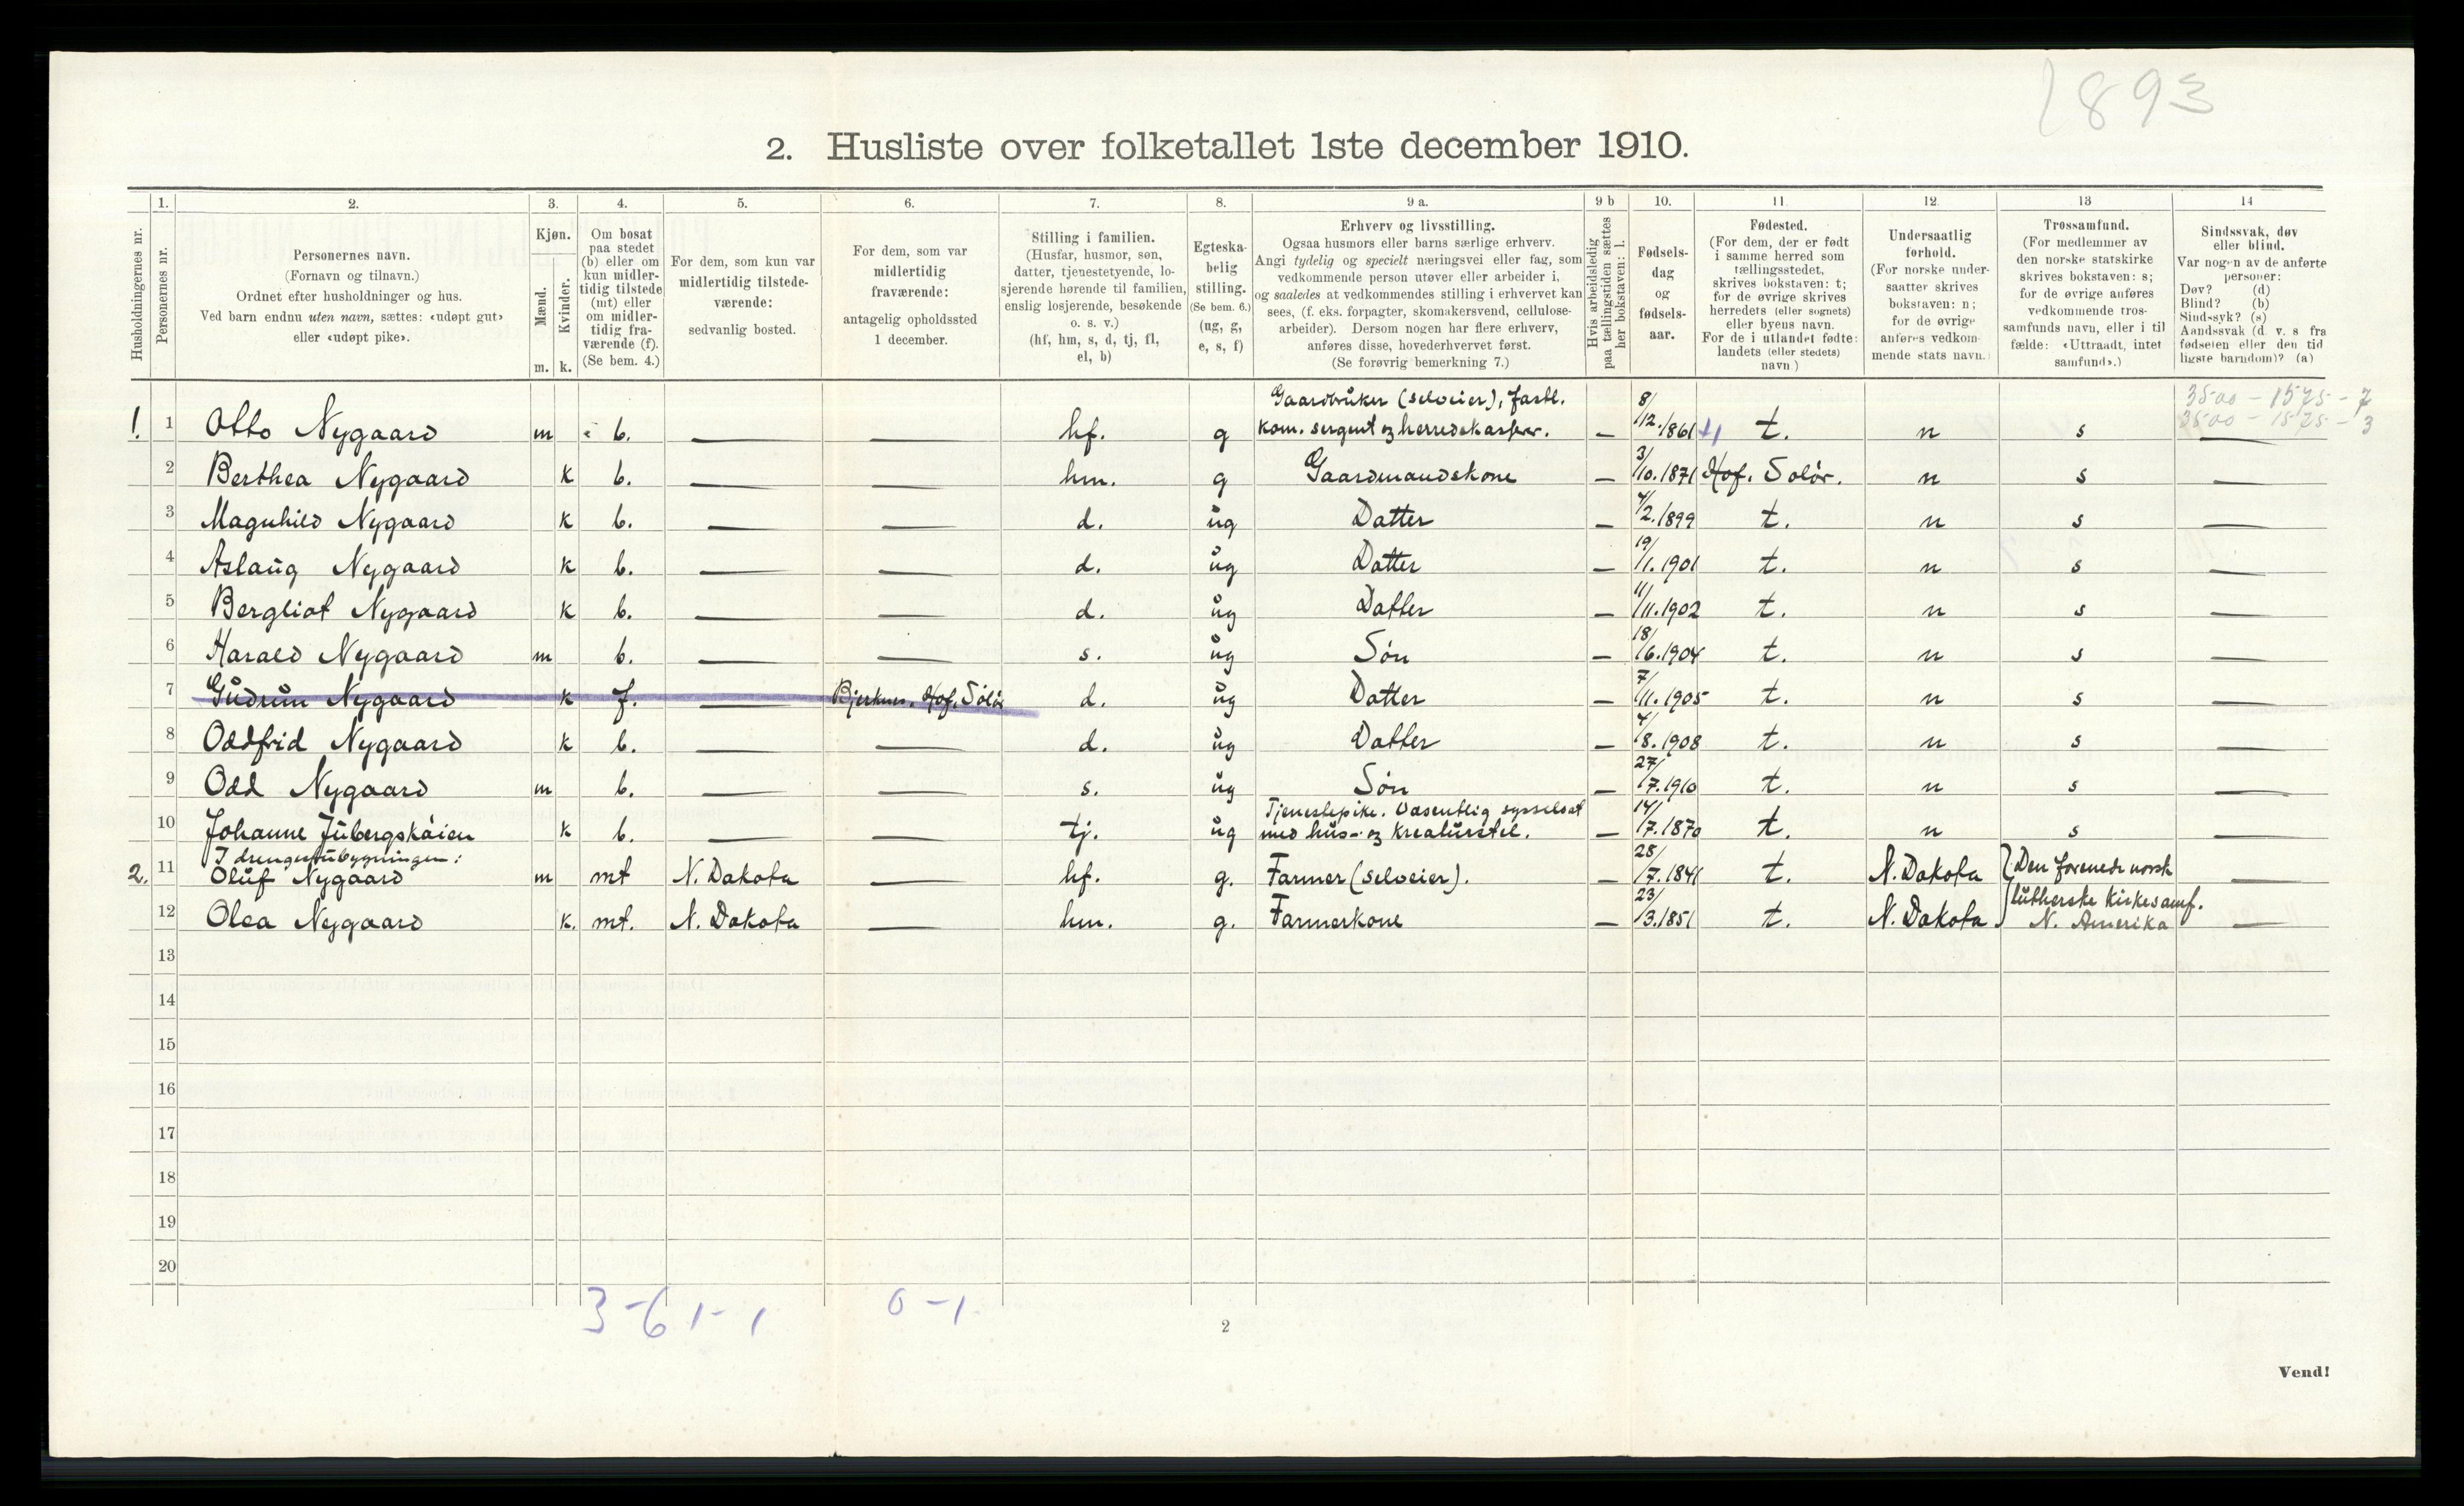 1893
2. Husliste over folketallet 1ste december 1910.
Husholdningernes nr.
1. Personernes nr.
2. Personernes navn.
(Fornavn og tilnavn.)
Ordnet efter husholdninger og hus.
Ved barn endnu uten navn, sættes: «udøpt gut»
eller «udøpt pike».
3. Kjøn.
Mænd. Kvinder.
m. k.
4. Om bosat
paa stedet
(b) eller om
kun midler-
tidig tilstede
(mt) eller
om midler-
tidig fra-
værende (f).
(Se bem. 4.)
5. For dem, som kun var
midlertidig tilstede-
værende:
sedvanlig bosted.
6. For dem, som var
midlertidig
fraværende:
antagelig opholdssted
1 december.
7. Stilling i familien.
(Husfar, husmor, søn,
datter, tjenestetyende, lo-
sjerende hørende til familien,
enslig losjerende, besøkende
o. s. v.)
(hf, hm, s, d, tj, fl,
el, b)
8. Egteska-
belig
stilling.
(Se bem. 6.)
(ug, g,
e, s, f)
9 a. Erhverv og livsstilling.
Ogsaa husmors eller barns særlige erhverv.
Angi tydelig og specielt næringsvei eller fag, som
vedkommende person utøver eller arbeider i,
og saaledes at vedkommendes stilling i erhvervet kan
sees, (f. eks. forpagter, skomakersvend, cellulose-
arbeider). Dersom nogen har flere erhverv,
anføres disse, hovederhvervet først.
(Se forøvrig bemerkning 7.)
9 b Hvis arbeidsledig
paa tællingstiden sættes
her bokstaven: l.
10. Fødsels-
dag
og
fødsels-
aar.
11. Fødested.
(For dem, der er født
i samme herred som
tællingsstedet,
skrives bokstaven: t;
for de øvrige skrives
herredets (eller sognets)
eller byens navn.
For de i utlandet fødte:
landets (eller stedets)
navn.)
12. Undersaatlig
forhold.
(For norske under-
saatter skrives
bokstaven: n;
for de øvrige
anføres vedkom-
mende stats navn.)
13 Trossamfund.
(For medlemmer av
den norske statskirke
skrives bokstaven: s;
for de øvrige anføres
vedkommende tros-
samfunds navn, eller i til-
fælde: «Uttraadt, intet
samfund».)
14 Sindssvak, døv
eller blind.
Var nogen av de anførte
personer:
Døv? (d)
Blind? (b)
Sindssyk? (s)
Aandssvak (d. v. s. fra
fødselen eller den tid-
ligste barndom)? (a)
3500 - 1575 - 7
3500 - 1575 - 3
Gaardbruker (selveier), fastl.
1. 1 Otto Nygaard m b. — — hf. g kom. sergent og herredskasserer. — 8/12.1861 t. n s —
2 Berthea Nygaard k b. — — hm. g Gaardmandskone — 3/10.1871 Hof. Solør. n s —
3 Magnhild Nygaard k b. — — d. ug Datter — 4/2.1899 t. n s —
4 Aslaug Nygaard k b. — — d. ug Datter — 19/1.1901 t. n s —
5 Bergliot Nygaard k b. — — d. ug Datter — 11/11.1902 t. n s —
6 Harald Nygaard m b. — — s. ug Søn — 18/6.1904 t. n s —
7 Gudrun Nygaard k f. — Bjerknes. Hof. Solør d. ug Datter — 7/11.1905 t. n s —
8 Oddfrid Nygaard k b. — — d. ug Datter — 4/8.1908 t. n s —
9 Odd Nygaard m b. — — s. ug Søn — 27/7.1910 t. n s —
Tjenestepike. Væsentlig sysselsat
10 Johanne Jubergskáien k b. — — tj. ug med hus- og kreaturstel. — 14/7.1870 t. n s —
I drengestubygningen:
2. 11 Oluf Nygaard m mt N. Dakota — hf. g. Farmer (selveier). — 28/7.1841 t. N. Dakota Den forenede norsk —
lutherske Kirkesamf.
12 Olea Nygaard k. mt. N. Dakota — hm. g. Farmerkone — 23/3.1851 t. N. Dakota N. Amerika —
13
14
15
16
17
18
19
20
3-6 1-1 0-1
2
Vend!